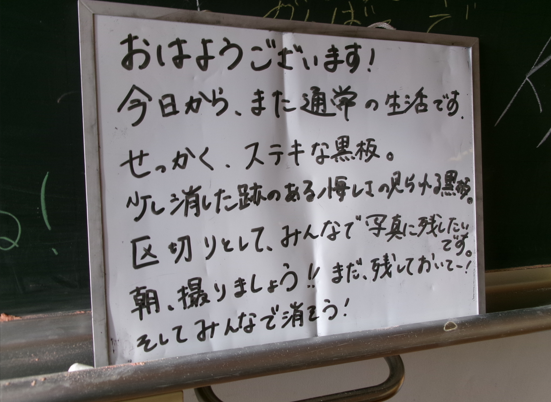 がんばで
おはようございます!
今日から、また通常の生活です.
せっかく、ステキな黒板。
少し消した跡のある悔しさの見られる黒板。
区切りとして、みんなで写真に残したいです。
朝、撮りましょう!! まだ、残しておいてー!
そしてみんなで消そう!